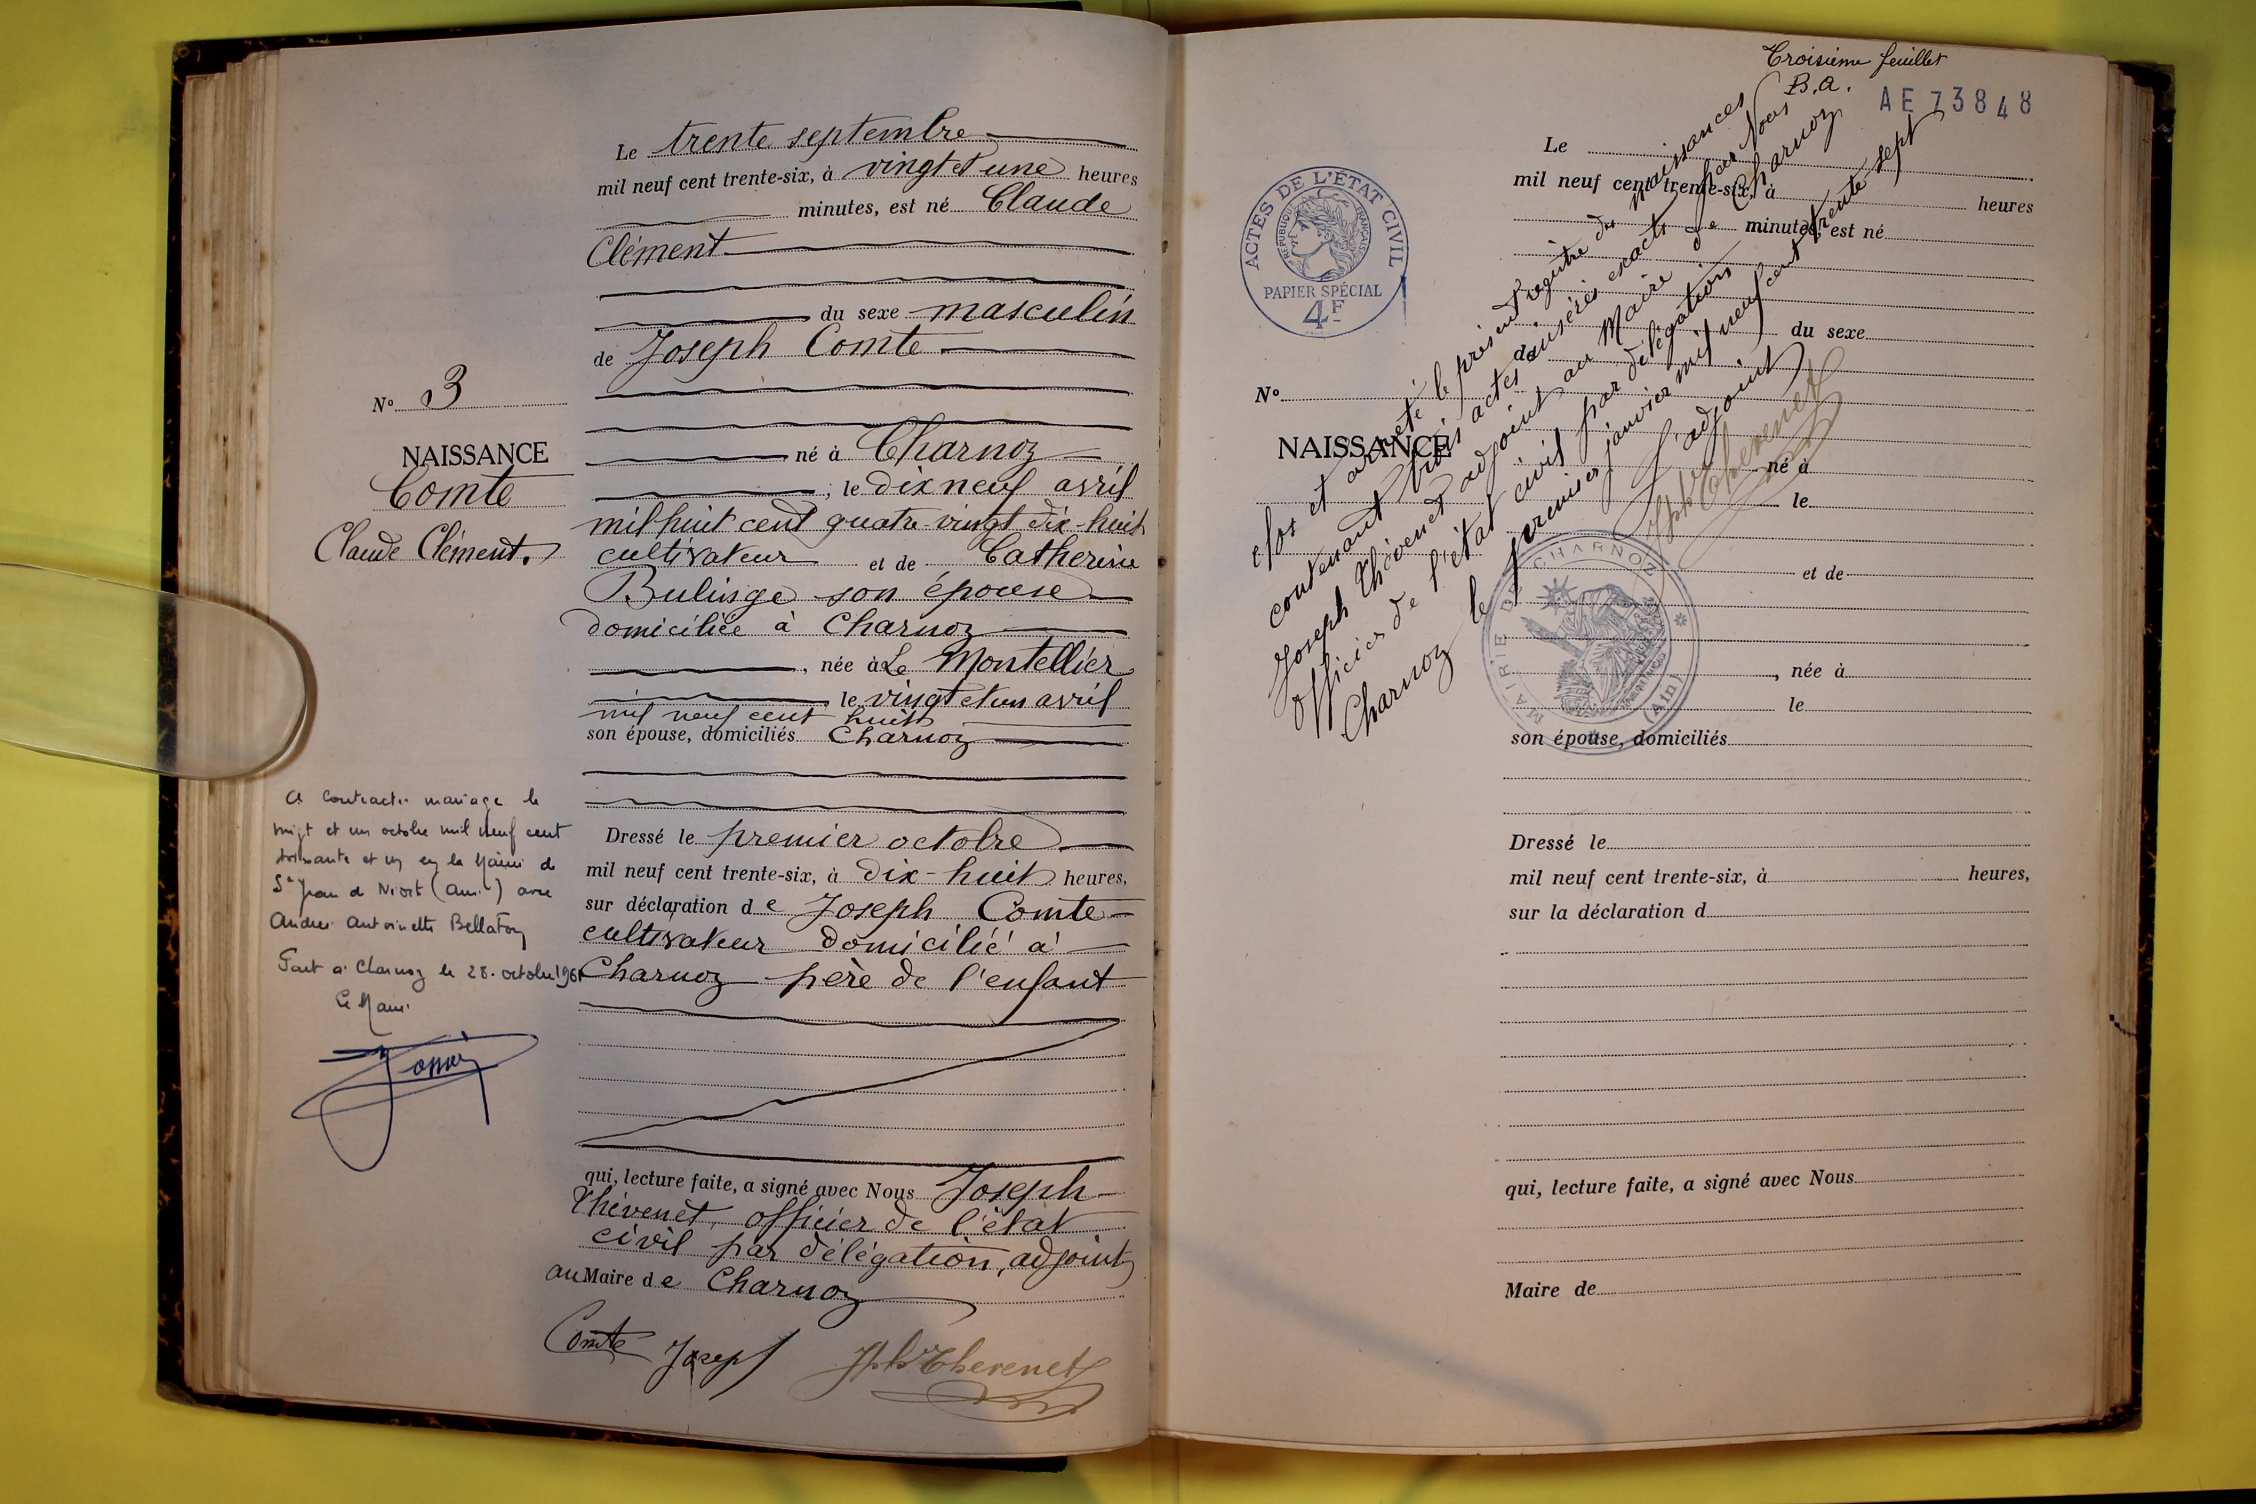 Le trente septembre
mil neuf cent trente-six, à vingt et une heures
minutes, est né Claude
Clément
du sexe masculin
de Joseph Comte
né à Charnoz
, le dix neuf avril
mil huit cent quatre vingt dix-huit
cultivateur et de Catherine
Bulinge son épouse
domiciliée à Charnoz
, née à Le Montellier
le vingt et un avril
mil neuf cent huit
son épouse, domiciliés Charnoz
Dressé le premier octobre
mil neuf cent trente-six, à dix-huit heures,
sur déclaration de Joseph Comte
cultivateur domicilié à
Charnoz père de l'enfant
qui, lecture faite, a signé avec Nous Joseph
Thévenet, officier de l'état
civil par délégation, adjoint
au Maire de Charnoz
Comte Joseph
Jph Thevenet
N° 3
NAISSANCE
Comte
Claude Clément.
A contracté mariage le
vingt et un octobre mil neuf cent
soixante et un en la Mairie de
St Jean de Niort (Ain) avec
Andrée Antoinette Bellaton
Fait à Charnoz le 28 octobre 1961
Le Maire
Troisième feuillet
B.A.
AE 73848
ACTES DE L'ÉTAT CIVIL
RÉPUBLIQUE FRANÇAISE
PAPIER SPÉCIAL
4F
N°
NAISSANCE
Clos et arrêté le présent registre des naissances
contenant trois actes insérés exacts par Nous
Joseph Thévenet adjoint au Maire de Charnoz
officier de l'état civil par délégation
Charnoz le premier janvier mil neuf cent trente sept
l'adjoint
Jph Thevenet
MAIRIE DE CHARNOZ
(Ain)
Le
mil neuf cent trente-six, à heures
minutes, est né
du sexe
de
né à
le
et de
, née à
le
son épouse, domiciliés
Dressé le
mil neuf cent trente-six, à heures,
sur la déclaration d
qui, lecture faite, a signé avec Nous
Maire de